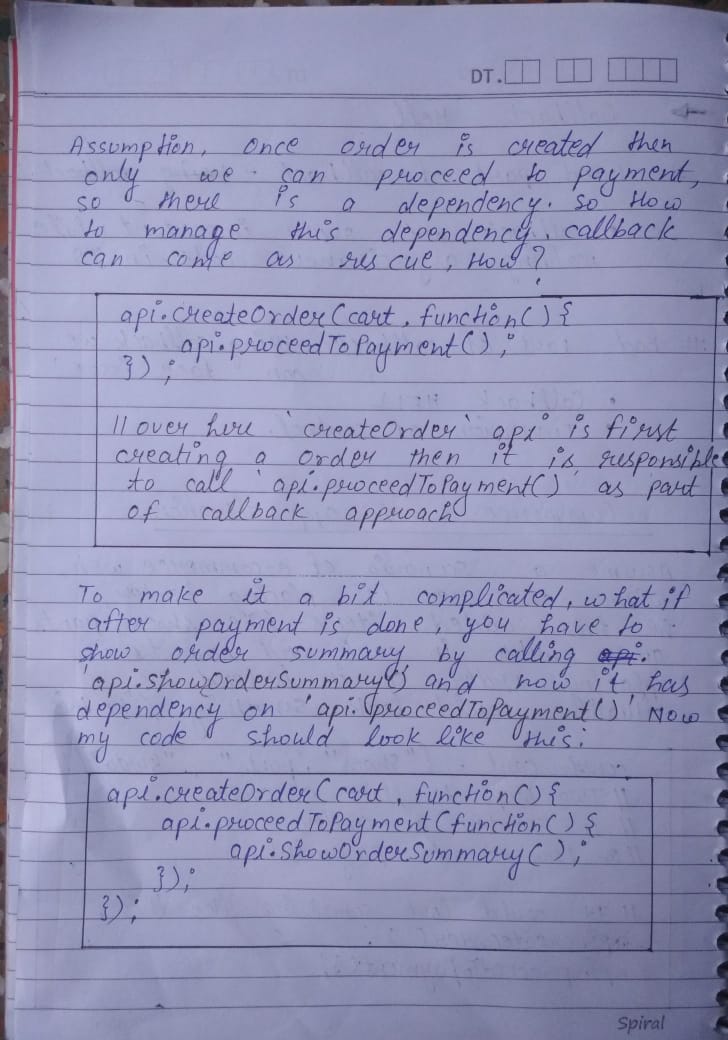 DT.
Assumption, once order is created then
only we can proceed to payment,
so there is a dependency. So How
to manage this dependency, callback
can come as rescue, How?
api.createOrder(cart, function(){
api.proceedToPayment();
});
// over here `createOrder` api is first
creating a order then it is responsible
to call `api.proceedToPayment()` as part
of callback approach
To make it a bit complicated, what if
after payment is done, you have to
show order summary by calling api.
`api.showOrderSummary()` and now it has
dependency on `api.proceedToPayment()`, Now
my code should look like this:
api.createOrder(cart, function(){
api.proceedToPayment(function(){
api.ShowOrderSummary();
});
});
Spiral